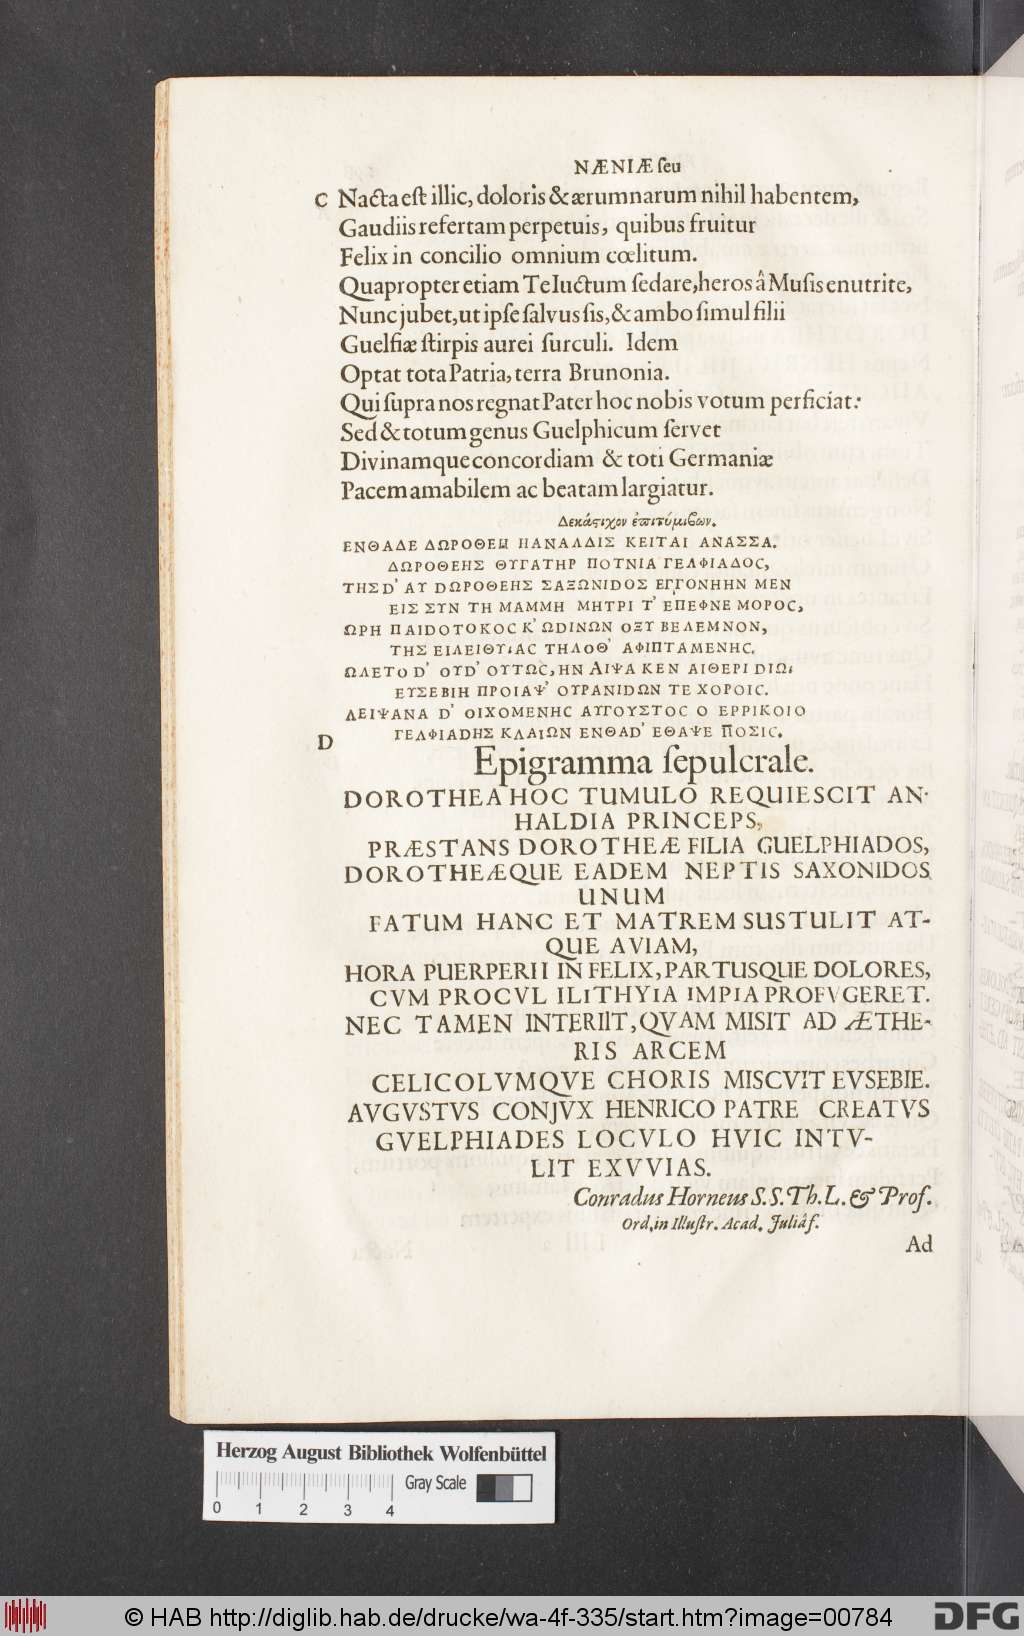 NÆNIÆ ſeu
C Nacta eſt illic, doloris & ærumnarum nihil habentem,
Gaudiis refertam perpetuis, quibus fruitur
Felix in concilio omnium cœlitum.
Quapropter etiam Te luctum ſedare, heros â Muſis enutrite,
Nunc jubet, ut ipſe ſalvus ſis, & ambo ſimul filii
Guelfiæ ſtirpis aurei ſurculi. Idem
Optat tota Patria, terra Brunonia.
Qui ſupra nos regnat Pater hoc nobis votum perficiat:
Sed & totum genus Guelphicum ſervet
Divinamque concordiam & toti Germaniæ
Pacem amabilem ac beatam largiatur.
Δεκάϛιχον ἐπιτύμϐων.
ΕΝΘΑΔΕ ΔΩΡΟΘΕΗ ΠΑΝΑΛΔΙΣ ΚΕΙΤΑΙ ΑΝΑΣΣΑ.
ΔΩΡΟΘΕΗΣ ΘΥΓΑΤΗΡ ΠΟΤΝΙΑ ΓΕΛΦΙΑΔΟΣ,
ΤΗΣ D' ΑΥ DΩΡΟΘΕΗΣ ΣΑΞΩΝΙDΟΣ ΕΓΓΟΝΗΗΝ ΜΕΝ
ΕΙΣ ΣΥΝ ΤΗ ΜΑΜΜΗ ΜΗΤΡΙ Τ' ΕΠΕΦΝΕ ΜΟΡΟΣ,
ΩΡΗ ΠΑΙDΟΤΟΚΟΣ Κ' ΩDΙΝΩΝ ΟΞΥ ΒΕΛΕΜΝΟΝ,
ΤΗΣ ΕΙΛΕΙΘΥΙΑC ΤΗΛΟΘ' ΑΦΙΠΤΑΜΕΝΗC.
ΩΛΕΤΟ D' ΟΥD' ΟΥΤΩC, ΗΝ ΑΙΨΑ ΚΕΝ ΑΙΘΕΡΙ DΙΩ,
ΕΥΣΕΒΙΗ ΠΡΟΙΑΨ' ΟΥΡΑΝΙDΩΝ ΤΕ ΧΟΡΟΙC.
ΛΕΙΨΑΝΑ D' ΟΙΧΟΜΕΝΗC ΑΥΓΟΥΣΤΟC Ο ΕΡΡΙΚΟΙΟ
D ΓΕΛΦΙΑDΗΣ ΚΛΑΙΩΝ ΕΝΘΑD' ΕΘΑΨΕ ΠΟΣΙC.
Epigramma ſepulcrale.
DOROTHEA HOC TUMULO REQUIESCIT AN-
HALDIA PRINCEPS,
PRÆSTANS DOROTHEÆ FILIA GUELPHIADOS,
DOROTHEÆQUE EADEM NEPTIS SAXONIDOS
UNUM
FATUM HANC ET MATREM SUSTULIT AT-
QUE AVIAM,
HORA PUERPERII IN FELIX, PARTUSQUE DOLORES,
CVM PROCVL ILITHYIA IMPIA PROFVGERET.
NEC TAMEN INTERIIT, QVAM MISIT AD ÆTHE-
RIS ARCEM
CELICOLVMQVE CHORIS MISCVIT EVSEBIE.
AVGVSTVS CONJVX HENRICO PATRE CREATVS
GVELPHIADES LOCVLO HVIC INTV-
LIT EXVVIAS.
Conradus Horneus S. S. Th. L. & Prof.
Ord. in Illuſtr. Acad. Juliâ f.
Ad
Herzog August Bibliothek Wolfenbüttel
Gray Scale
0 1 2 3 4
© HAB http://diglib.hab.de/drucke/wa-4f-335/start.htm?image=00784
DFG